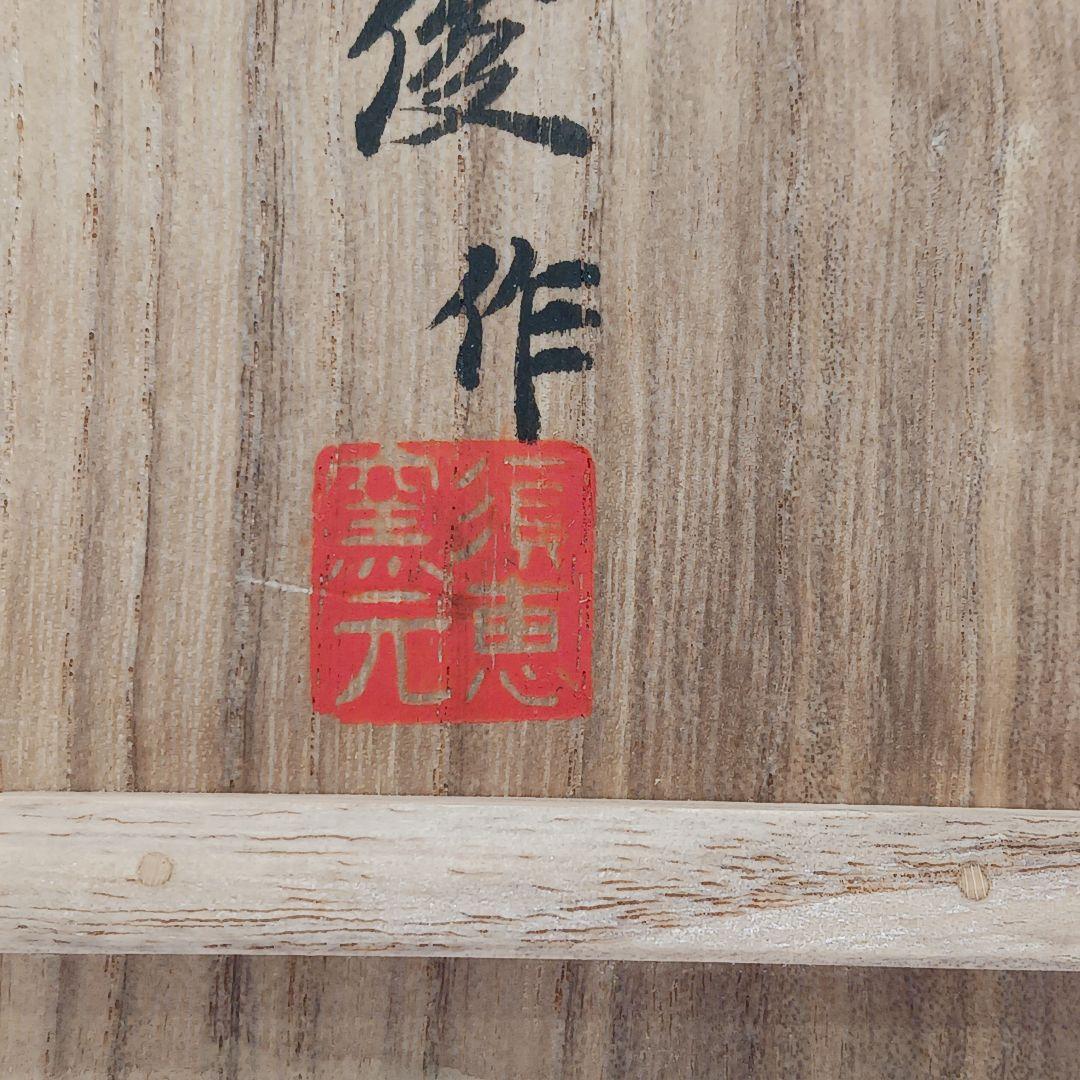 俊作
須恵
窯元